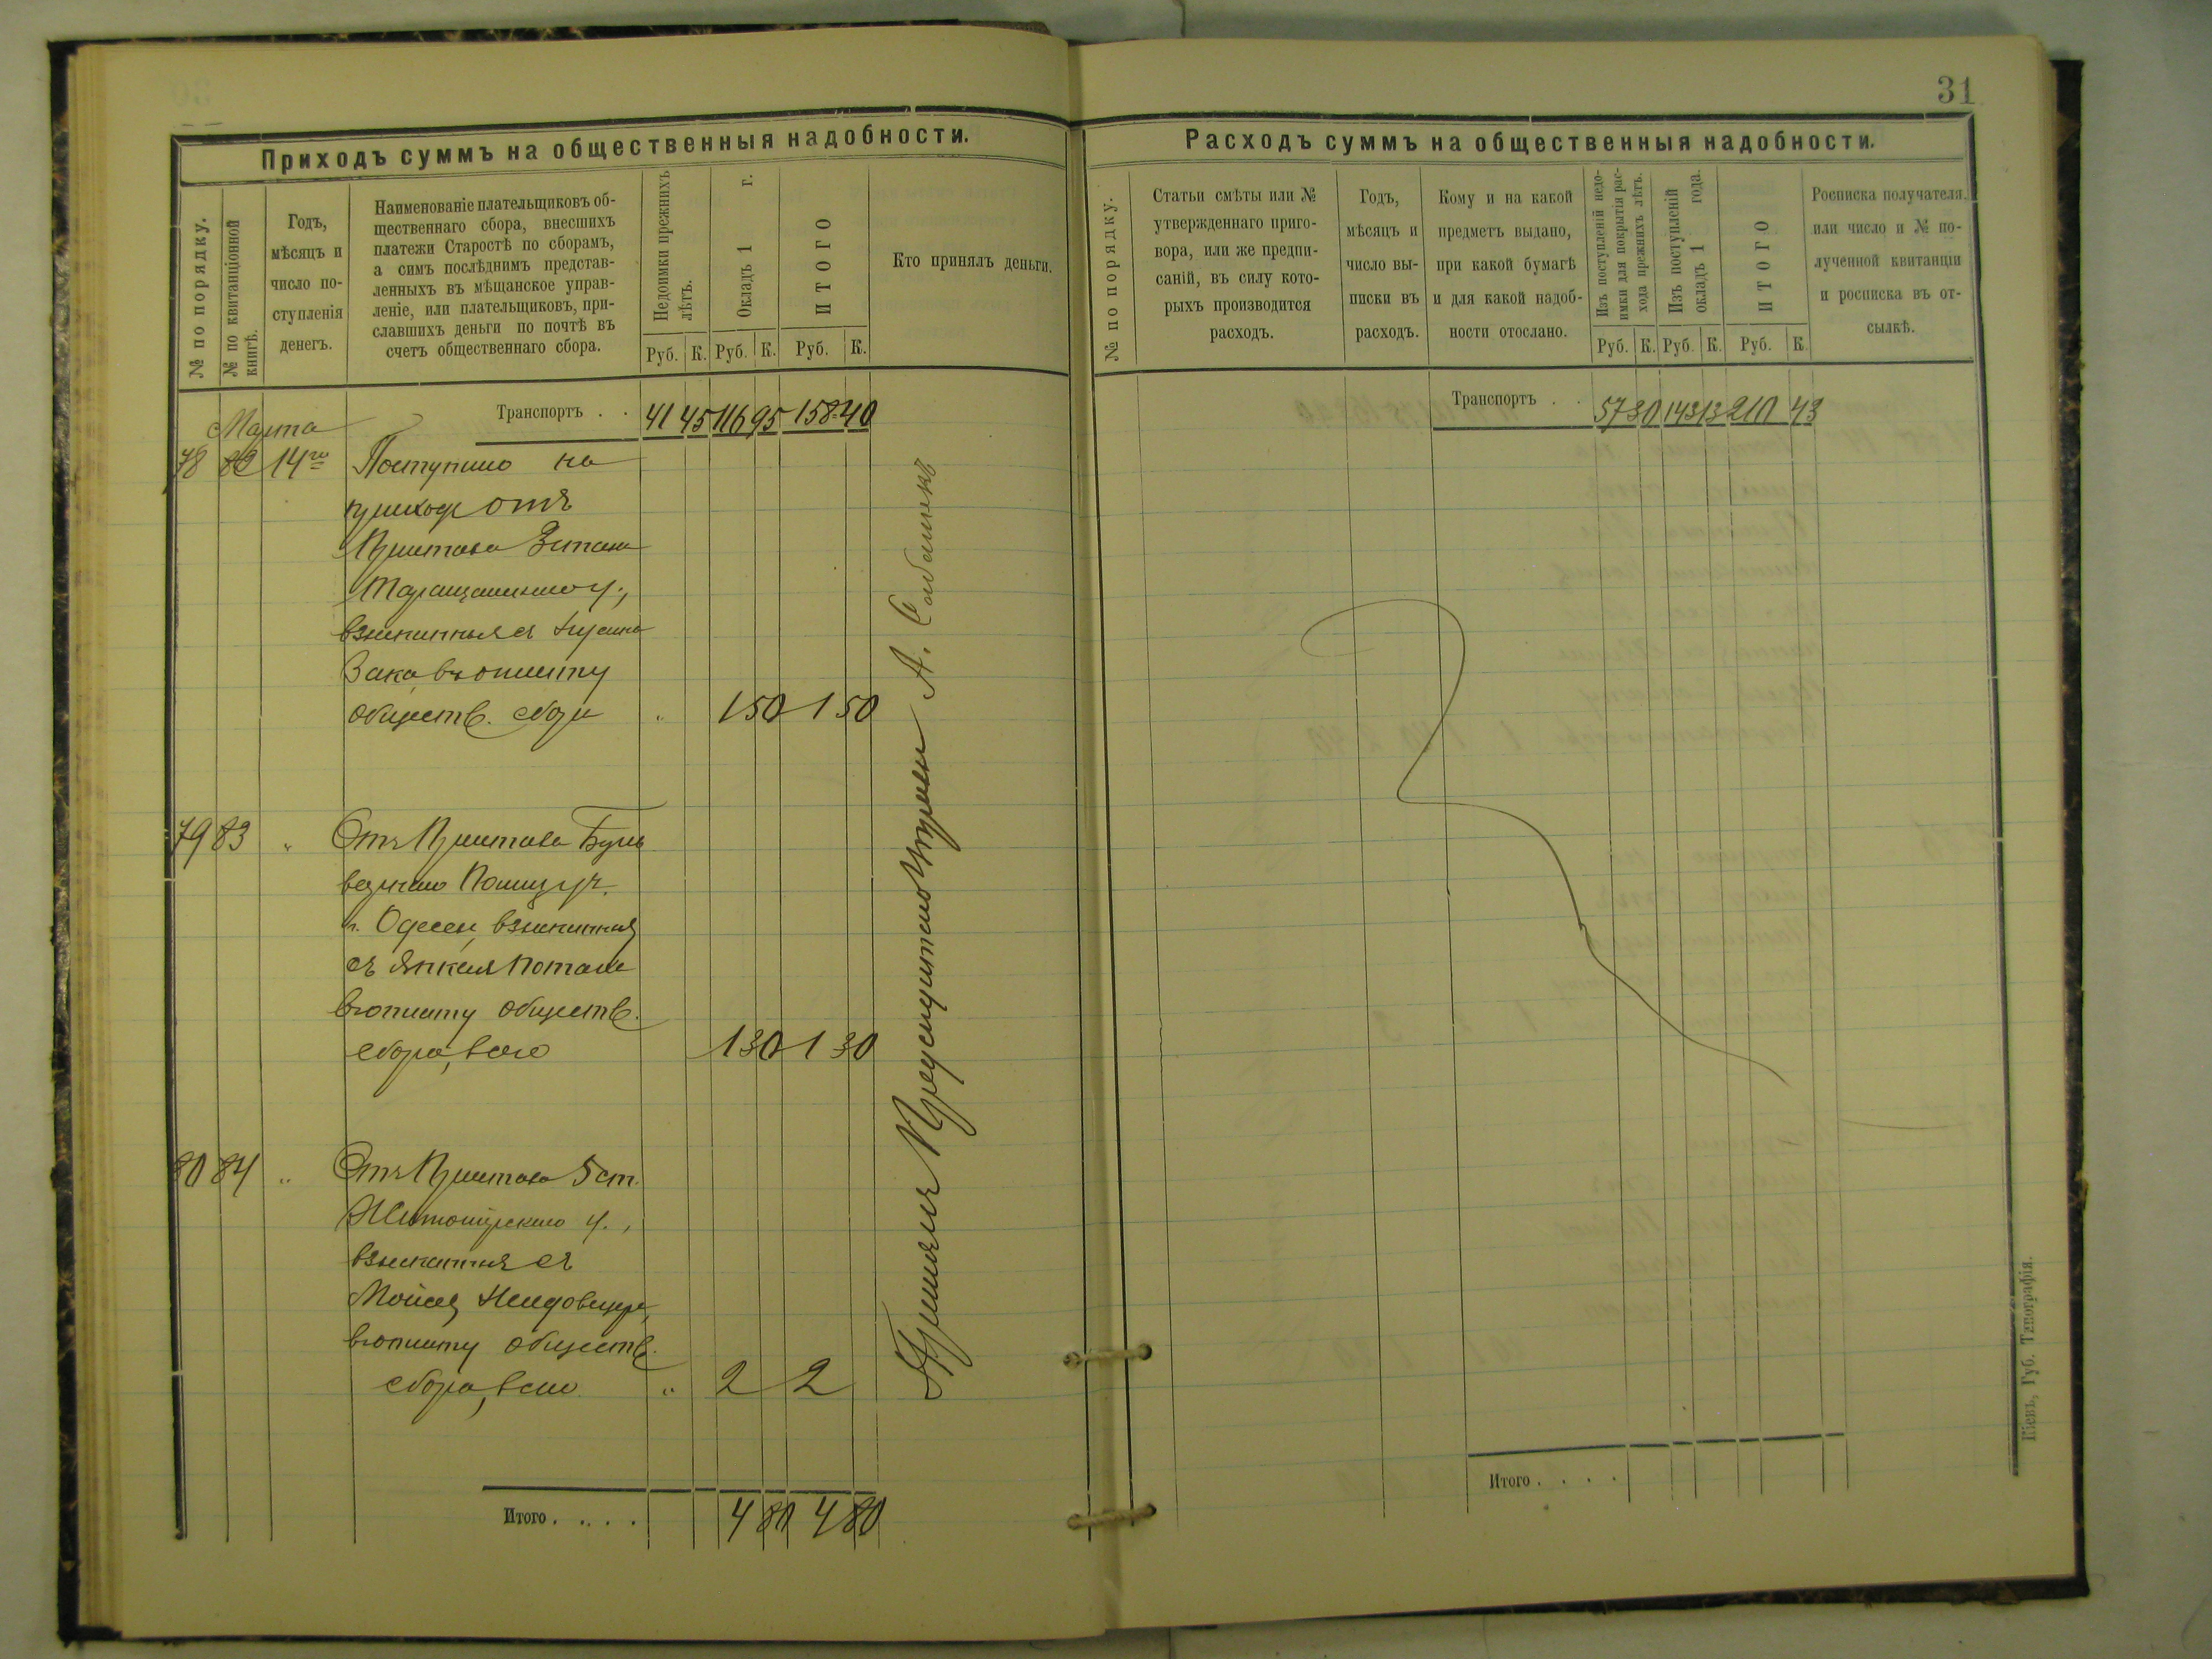 31
Приходъ суммъ на общественныя надобности.
№ по порядку.
№ по квитанціонной
книгѣ.
Годъ,
мѣсяцъ и
число по-
ступленія
денегъ.
Наименованіе плательщиковъ об-
щественнаго сбора, внесшихъ
платежи Старостѣ по сборамъ,
а симъ послѣднимъ представ-
ленныхъ въ мѣщанское управ-
леніе, или плательщиковъ, при-
славшихъ деньги по почтѣ въ
счетъ общественнаго сбора.
Недоимки прежнихъ
лѣтъ.
Окладъ 1 г.
ИТОГО
Кто принялъ деньги.
Руб. К. Руб. К. Руб. К.
Транспортъ . . 41 45 116 95 158 40
Марта
78 82 14го Поступило на
приходъ отъ
Пристава 3 стана
Таращанскаго у.,
взысканныя съ
Зака въ уплату
обществ. сбора " 1 50 1 50
79 83 " Отъ Пристава Буль
варнаго Полиц. уч.
г. Одессы, взысканныя
съ Янкеля
въ уплату обществ.
сбора, всего 1 30 1 30
80 84 " Отъ Пристава 5 ст.
Житомірскаго у.,
взысканныя съ
въ уплату обществ.
сбора, всего " 2 2
Итого . . . . 4 80 4 80
Принялъ А.
Расходъ суммъ на общественныя надобности.
№ по порядку.
Статьи смѣты или №
утвержденнаго приго-
вора, или же предпи-
саній, въ силу кото-
рыхъ производится
расходъ.
Годъ,
мѣсяцъ и
число вы-
писки въ
расходъ.
Кому и на какой
предметъ выдано,
при какой бумагѣ
и для какой надоб-
ности отослано.
Изъ поступленій недо-
имки для покрытія рас-
хода прежнихъ лѣтъ.
Изъ поступленій
окладъ 1 года.
ИТОГО
Росписка получателя.
или число и № по-
лученной квитанціи
и росписка въ от-
сылкѣ.
Руб. К. Руб. К. Руб. К.
Транспортъ . . 57 30 143 13 210 43
Итого . . . .
Кіевъ, Губ. Типографія.